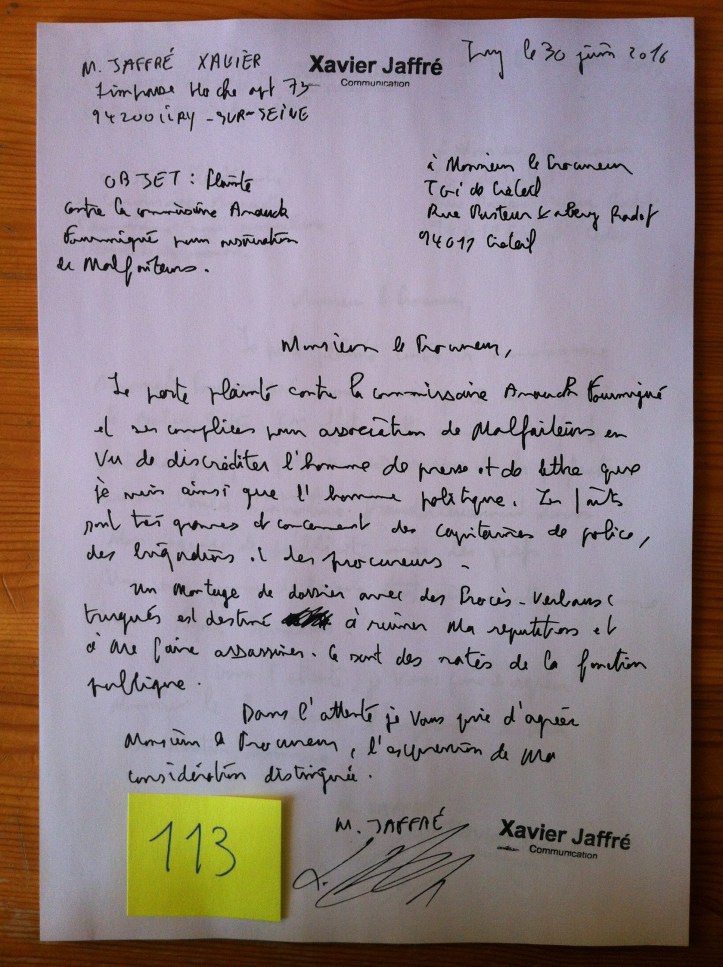 M. JAFFRÉ XAVIER
Xavier Jaffré
Communication
Ivry le 30 juin 2016
1 impasse Hoche apt 73
94200 IVRY-SUR-SEINE
OBJET : Plainte
contre la commissaire Anouck
Fourmigué pour association
de Malfaiteurs.
à Monsieur le Procureur
TGI de Créteil
Rue Pasteur Valery Radot
94011 Créteil
Monsieur le Procureur,
Je porte plainte contre la commissaire Anouck Fourmigué
et ses complices pour association de Malfaiteurs en
vu de discréditer l'homme de presse et de lettre que
je suis ainsi que l'homme politique. Les faits
sont très graves et concernent des capitaines de police,
des brigadiers et les procureurs.
Un montage de dossier avec des Procès-Verbaux
truqués est destiné à ruiner ma réputation et
à me faire assassiner. Ce sont des ratés de la fonction
publique.
Dans l'attente je vous prie d'agréer
Monsieur le Procureur, l'expression de ma
considération distinguée.
M. JAFFRÉ
Xavier Jaffré
Communication
113